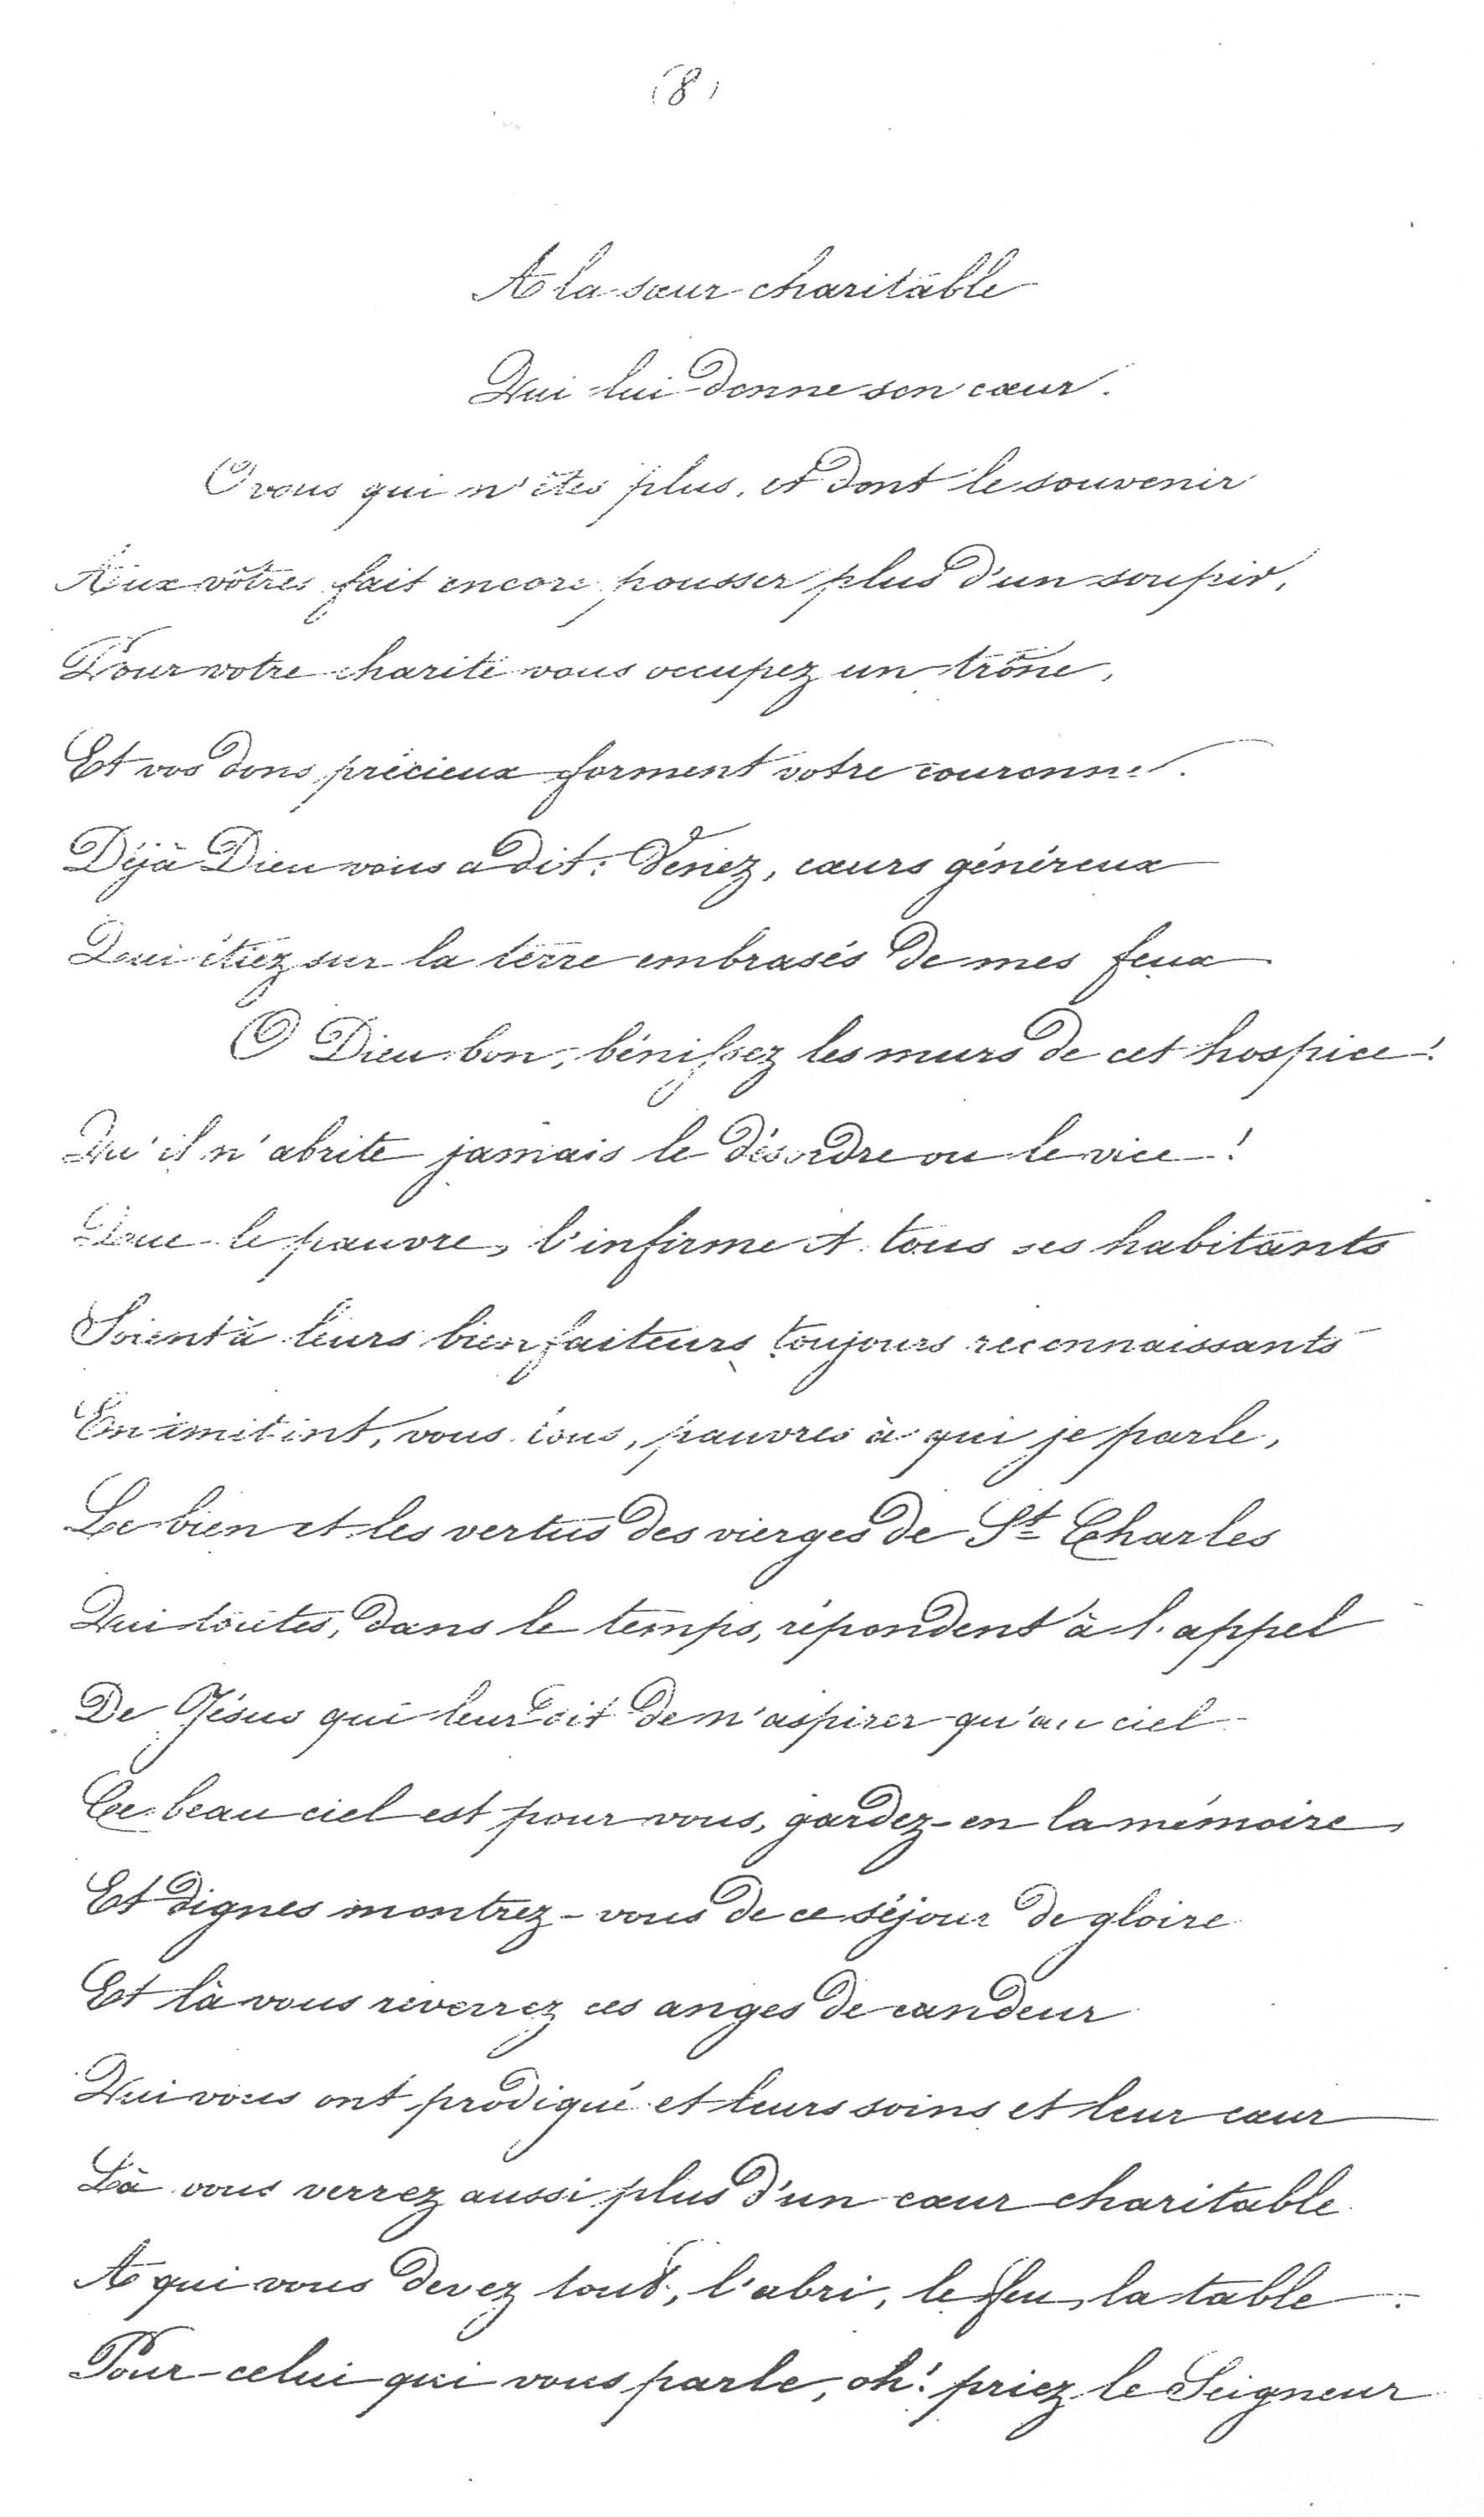 (8)
A la sœur charitable
Qui lui donne son cœur.
O vous qui n'êtes plus, et dont le souvenir
Aux vôtres fait encore pousser plus d'un soupir,
Pour votre charité vous occupez un trône,
Et vos dons précieux forment votre couronne.
Déjà Dieu vous a dit: Venez, cœurs généreux
Qui étiez sur la terre embrasés de mes feux
O Dieu bon, bénissez les murs de cet hospice!
Qu'il n'abrite jamais le désordre ou le vice!
Que le pauvre, l'infirme et tous ses habitants
Soient à leurs bienfaiteurs toujours reconnaissants
En imitant, vous tous, pauvres à qui je parle,
Le bien et les vertus des vierges de St Charles
Qui toutes, dans le temps, répondent à l'appel
De Jésus qui leur dit de n'aspirer qu'au ciel
Ce beau ciel est pour vous, gardez-en la mémoire
Et dignes montrez-vous de ce séjour de gloire
Et là vous reverrez ces anges de candeur
Qui vous ont prodigué et leurs soins et leur cœur
Là vous verrez aussi plus d'un cœur charitable
A qui vous devez tout, l'abri, le feu, la table.
Pour celui qui vous parle, oh! priez le Seigneur